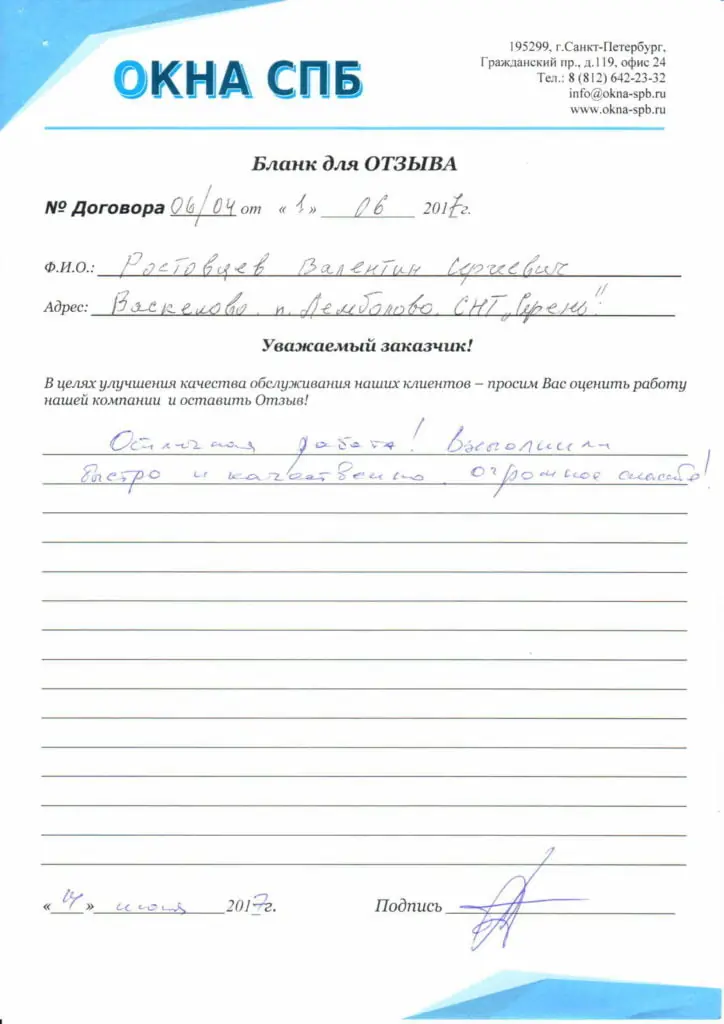 ОКНА СПБ
195299, г.Санкт-Петербург,
Гражданский пр., д.119, офис 24
Тел.: 8 (812) 642-23-32
info@okna-spb.ru
www.okna-spb.ru
Бланк для ОТЗЫВА
№ Договора 06/04 от « 1 » 06 2017г.
Ф.И.О.: Ростовцев Валентин Сергеевич
Адрес: Васкелово. п. Лемболово. СНТ „Сирень"
Уважаемый заказчик!
В целях улучшения качества обслуживания наших клиентов – просим Вас оценить работу
нашей компании и оставить Отзыв!
Отличная работа! Выполнили
быстро и качественно. огромное спасибо!
« 14 » июня 2017г. Подпись